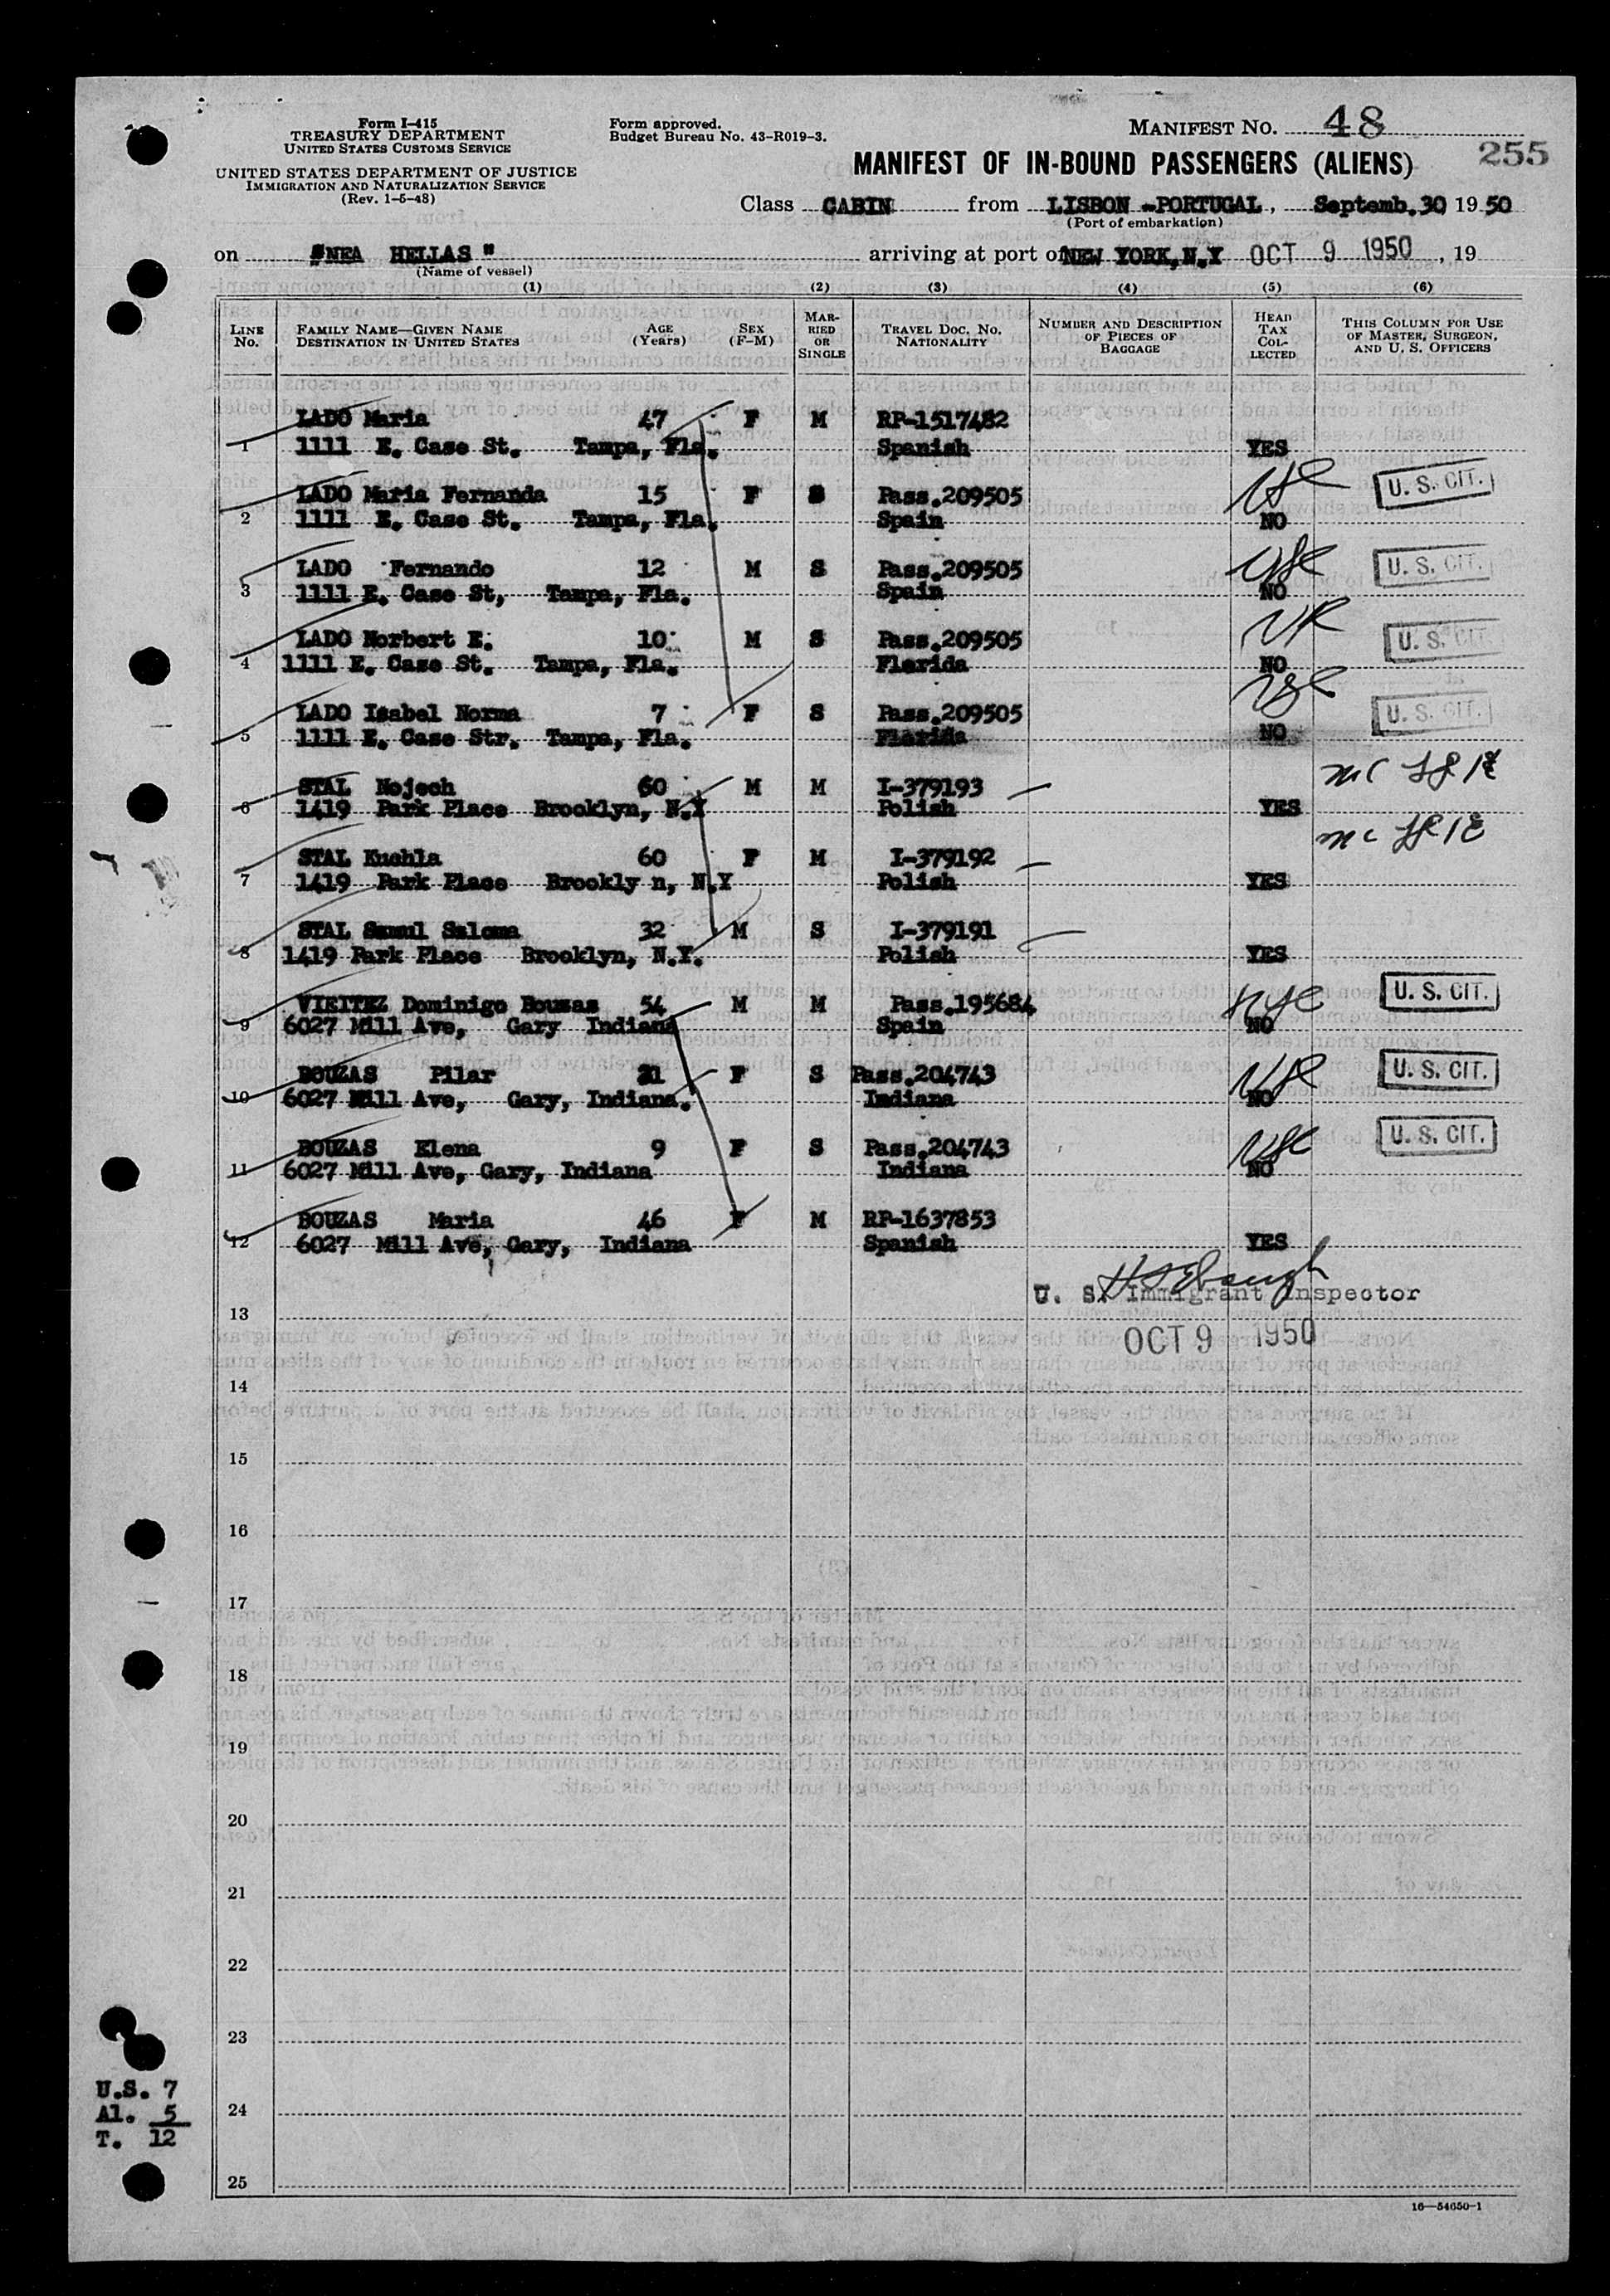 Form I-415
TREASURY DEPARTMENT
UNITED STATES CUSTOMS SERVICE
UNITED STATES DEPARTMENT OF JUSTICE
IMMIGRATION AND NATURALIZATION SERVICE
(Rev. 1-5-48)
Form approved.
Budget Bureau No. 43-R019-3.
MANIFEST NO. 48
255
MANIFEST OF IN-BOUND PASSENGERS (ALIENS)
Class CABIN from LISBON -PORTUGAL, Septemb.30 19 50
(Port of embarkation)
on "NEA HELLAS" arriving at port of NEW YORK, N.Y OCT 9 1950, 19
(Name of vessel)
(1) (2) (3) (4) (5) (6)
LINE No. FAMILY NAME—GIVEN NAME DESTINATION IN UNITED STATES AGE (Years) SEX (F-M) MARRIED OR SINGLE TRAVEL DOC. NO. NATIONALITY NUMBER AND DESCRIPTION OF PIECES OF BAGGAGE HEAD TAX COLLECTED THIS COLUMN FOR USE OF MASTER, SURGEON, AND U. S. OFFICERS
LADO Maria 47 F M RP-1517482
1 1111 E. Case St. Tampa, Fla. Spanish YES
LADO Maria Fernanda 15 F S Pass.209505 U. S. CIT.
2 1111 E. Case St. Tampa, Fla. Spain NO
LADO Fernando 12 M S Pass.209505 U. S. CIT.
3 1111 E. Case St, Tampa, Fla. Spain NO
LADO Norbert E. 10 M S Pass.209505 U. S. CIT.
4 1111 E. Case St. Tampa, Fla. Florida NO
LADO Isabel Norma 7 F S Pass.209505 U. S. CIT.
5 1111 E. Case Str. Tampa, Fla. Florida NO
STAL Nojech 60 M M I-379193
6 1419 Park Place Brooklyn, N.Y Polish YES
STAL Kushla 60 F M I-379192
7 1419 Park Place Brookly n, N.Y Polish YES
STAL Samul Saloma 32 M S I-379191
8 1419 Park Place Brooklyn, N.Y. Polish YES
VIEITEZ Dominigo Bouzas 54 M M Pass.195684 U. S. CIT.
9 6027 Mill Ave, Gary Indiana Spain NO
BOUZAS Pilar 21 F S Pass.204743 U. S. CIT.
10 6027 Mill Ave, Gary, Indiana. Indiana NO
BOUZAS Elena 9 F S Pass.204743 U. S. CIT.
11 6027 Mill Ave, Gary, Indiana Indiana NO
BOUZAS Maria 46 F M RP-1637853
12 6027 Mill Ave, Gary, Indiana Spanish YES
U. S. Immigrant Inspector
13
OCT 9 1950
14
15
16
17
18
19
20
21
22
23
24
25
U.S. 7
Al. 5
T. 12
16—54650-1